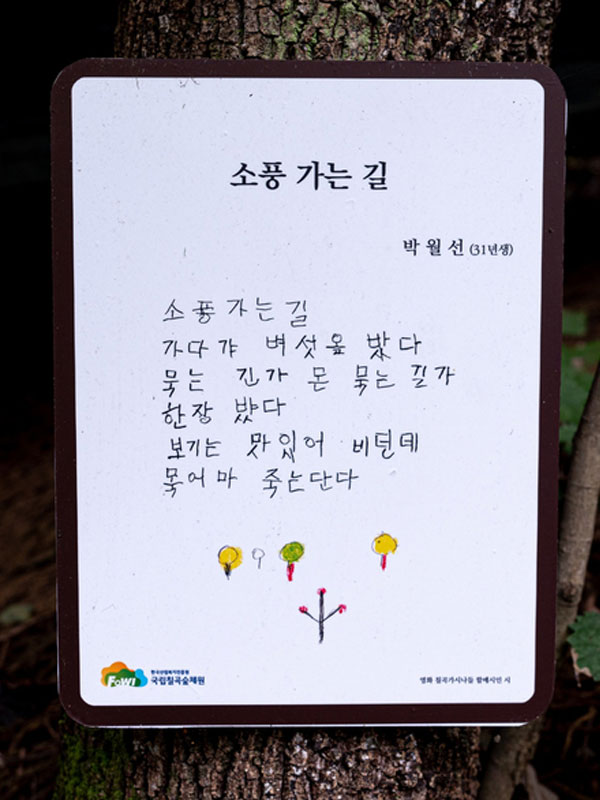 소풍 가는 길
박 월 선 (31년생)
소풍 가는 길
가다가 벼섯을 밨다
묵는 긴가 몬 묵는 길가
한장 밨다
보기는 맛있어 비던데
묵어마 죽는단다
FoWI
한국산림복지진흥원
국립칠곡숲체원
영화 칠곡가시나들 할매시인 시